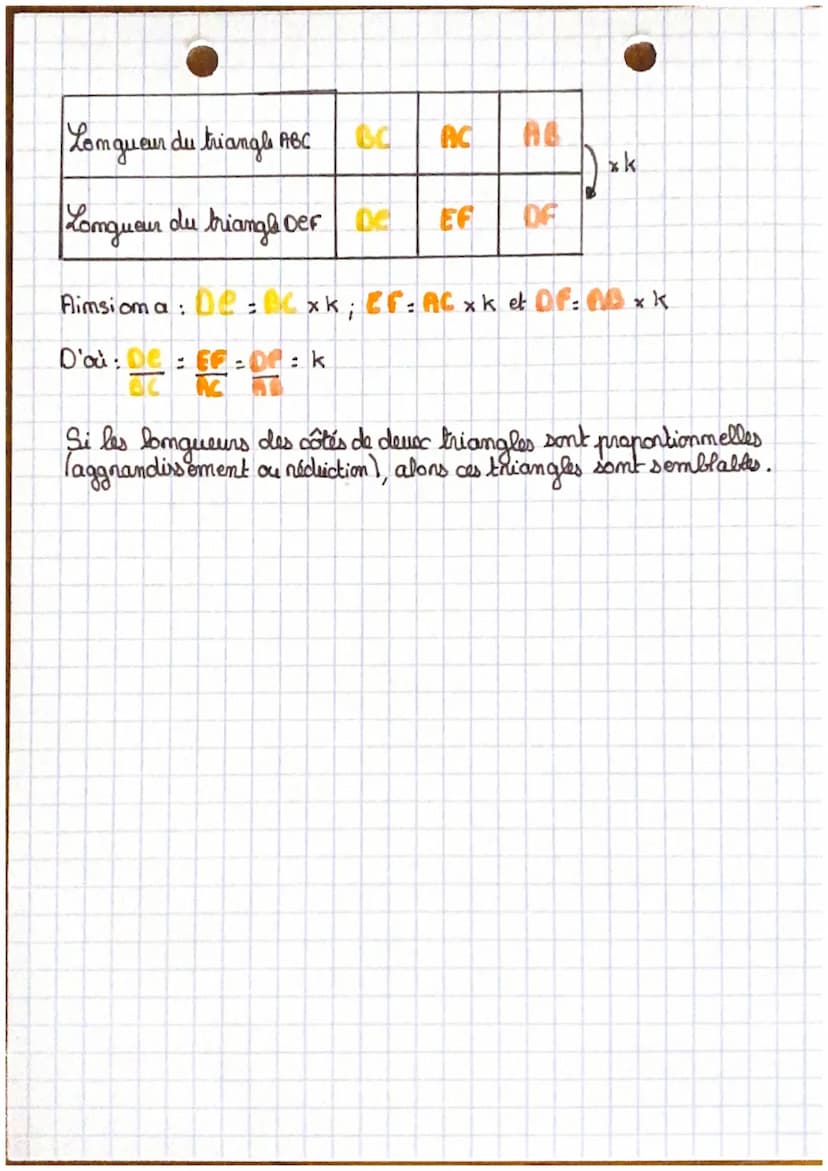 Longueur du triangle ABC BC AC AB
x k
Longueur du triangle DEF DE EF DF
Ainsi on a : DE = BC x k ; EF = AC x k et DF = AB x k
D'où : DE/BC = EF/AC = DF/AB = k
Si les longueurs des côtés de deux triangles sont proportionnelles
(aggrandissement ou réduction), alors ces triangles sont semblables.